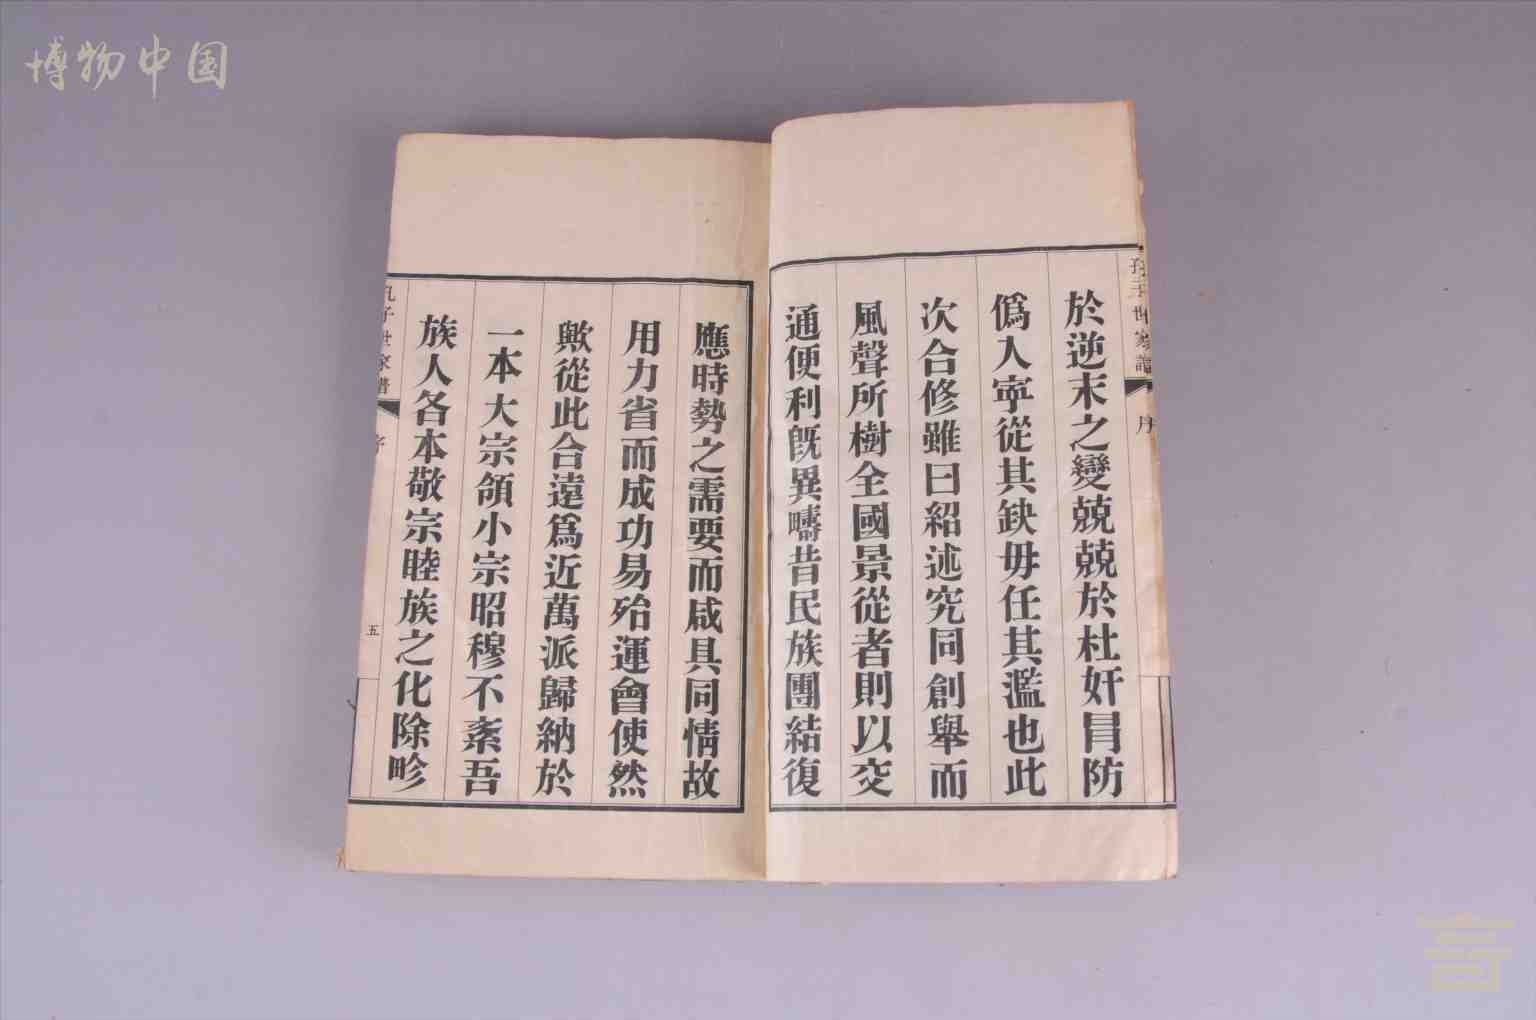 博物中国
孔子世家譜
序
於逆末之變兢兢於杜奸冒防
僞人寧從其缺毋任其濫也此
次合修雖曰紹述究同創舉而
風聲所樹全國景從者則以交
通便利旣異疇昔民族團結復
應時勢之需要而咸具同情故
用力省而成功易殆運會使然
歟從此合遠爲近萬派歸納於
一本大宗領小宗昭穆不紊吾
族人各本敬宗睦族之化除畛
孔子世家譜
序
五